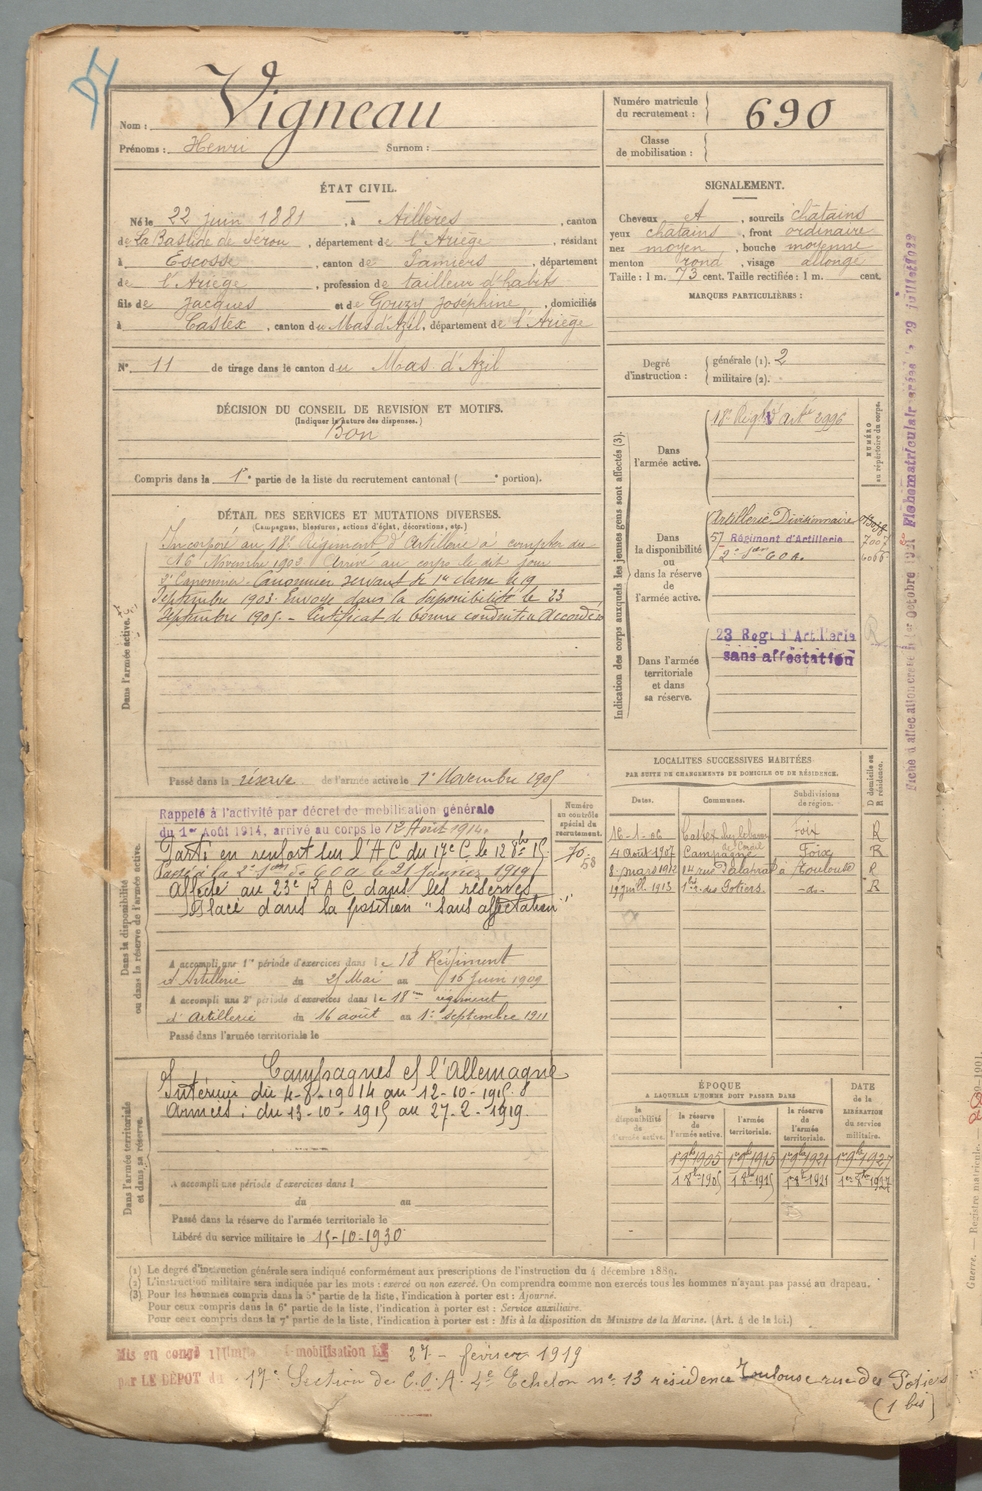 Vigneau
Nom :
Prénoms : Henri Surnom :
Numéro matricule du recrutement : 690
Classe de mobilisation :
ÉTAT CIVIL.
Né le 22 juin 1881, à Aillères, canton
de La Bastide de Sérou, département de l'Ariège, résidant
à Escosse, canton de Pamiers, département
de l'Ariège, profession de tailleur d'habits
fils de Jacques et de Gouzy Joséphine, domiciliés
à Castex, canton du Mas d'Azil, département de l'Ariège
N° 11 de tirage dans le canton du Mas d'Azil
SIGNALEMENT.
Cheveux et, sourcils châtains
yeux châtains, front ordinaire
nez moyen, bouche moyenne
menton rond, visage allongé
Taille : 1 m. 73 cent. Taille rectifiée : 1 m. cent.
MARQUES PARTICULIÈRES :
Degré d'instruction : générale (1). 2
militaire (2).
DÉCISION DU CONSEIL DE REVISION ET MOTIFS.
(Indiquer la nature des dispenses.)
Bon
Compris dans la 1re partie de la liste du recrutement cantonal ( e portion).
DÉTAIL DES SERVICES ET MUTATIONS DIVERSES.
(Campagnes, blessures, actions d'éclat, décorations, etc.)
Dans l'armée active.
Incorporé au 18e Régiment d'Artillerie à compter du
16 Novembre 1902 Arrivé au corps le dit jour
2e Canonnier. Canonnier servant de 1re classe le 19
Septembre 1903. Envoyé dans la disponibilité le 23
Septembre 1905. - Certificat de bonne conduite Accordé
Passé dans la réserve de l'armée active le 1er Novembre 1905
Indication des corps auxquels les jeunes gens sont affectés (3).
NUMÉRO au répertoire du corps.
Dans l'armée active.
18e Regt d'Artie 2996
Dans la disponibilité ou dans la réserve de l'armée active.
Artillerie Divisionnaire
57 Régiment d'Artillerie
Dans l'armée territoriale et dans sa réserve.
23 Regt d'Artillerie
sans affectation
LOCALITÉS SUCCESSIVES HABITÉES
PAR SUITE DE CHANGEMENTS DE DOMICILE OU DE RÉSIDENCE.
Dates. Communes. Subdivisions de région. D domicile ou R résidence.
16-1-06 Castex Foix R
4 août 1907 Campagne Foix R
8 mars 1912 14 rue à Toulouse R
19 juil 1913 1 bis des Potiers -do- R
Dans la disponibilité ou dans la réserve de l'armée active.
Numéro au contrôle spécial du recrutement.
Rappelé à l'activité par décret de mobilisation générale
du 1er Août 1914, arrivé au corps le 12 Août 1914.
Parti en renfort sur l'A C du 17e C. le 12 8bre 15
Passé à la 2e le 21 janvier 1919
Affecté au 23e R A C dans les réserves
Placé dans la position "sans affectation"
A accompli une 1re période d'exercices dans le 18 Régiment
d'Artillerie du 25 Mai au 16 Juin 1909
A accompli une 2e période d'exercices dans le 18me régiment
d'artillerie du 16 août au 1er septembre 1911
Passé dans l'armée territoriale le
Dans l'armée territoriale et dans sa réserve.
Campagnes c/ l'Allemagne
Intérieur du 4-8-1914 au 12-10-1915.
Armées : du 13-10-1915 au 27-2-1919.
A accompli une période d'exercices dans l
du au
Passé dans la réserve de l'armée territoriale le
Libéré du service militaire le 15-10-1930
ÉPOQUE
À LAQUELLE L'HOMME DOIT PASSER DANS
la disponibilité de l'armée active. la réserve de l'armée active. l'armée territoriale. la réserve de l'armée territoriale. DATE de la LIBÉRATION du service militaire.
1er 9bre 1905 1er 9bre 1915 1er 9bre 1921 1er 9bre 1927
1 8bre 1905 1 8bre 1915 1 8bre 1921 1er 8bre 1927
(1) Le degré d'instruction générale sera indiqué conformément aux prescriptions de l'instruction du 4 décembre 1889.
(2) L'instruction militaire sera indiquée par les mots : exercé ou non exercé. On comprendra comme non exercés tous les hommes n'ayant pas passé au drapeau.
(3) Pour les hommes compris dans la 5e partie de la liste, l'indication à porter est : Ajourné.
Pour ceux compris dans la 6e partie de la liste, l'indication à porter est : Service auxiliaire.
Pour ceux compris dans la 7e partie de la liste, l'indication à porter est : Mis à la disposition du Ministre de la Marine. (Art. 4 de la loi.)
Mis en congé illimité mobilisation LE 27 - février 1919
par LE DÉPOT du 17e Section de C.O.A. 4e Echelon n° 13 résidence Toulouse rue des Potiers
(1 bis)
Guerre. — Registre matricule.